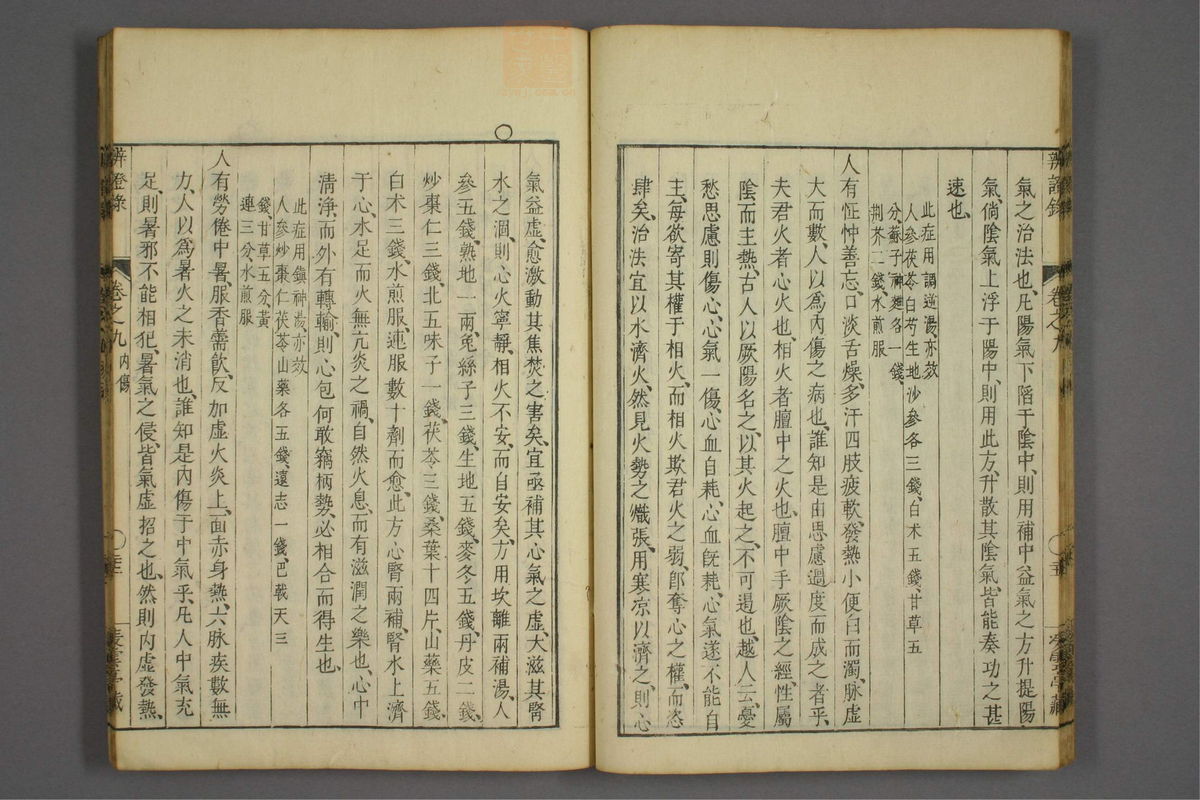 氣之治法也凡陽氣下陷于陰中則用補中益氣之方升提陽
氣倘陰氣上浮于陽中則用此方升散其陰氣皆能奏功之甚
速也
此症用調逆湯亦效
人參茯苓白芍生地沙參各三錢白术五錢甘草五
分蘇子神麯各一錢
荆芥二錢水煎服
人有怔忡善忘口淡舌燥多汗四肢疲軟發熱小便白而濁脉虛
大而數人以爲內傷之病也誰知是由思慮過度而成之者乎
夫君火者心火也相火者膻中之火也膻中手厥陰之經性屬
陰而主熱古人以厥陽名之以其火起之不可遏也越人云憂
愁思慮則傷心心氣一傷心血自耗心血旣耗心氣遂不能自
主每欲寄其權于相火而相火欺君火之弱卽奪心之權而恣
肆矣治法宜以水濟火然見火勢之熾張用寒凉以濟之則心
辨證錄
卷之九
氣益虛愈激動其焦焚之害矣宜亟補其心氣之虛大滋其腎
水之涸則心火寧靜相火不安而自安矣方用坎離兩補湯人
參五錢熟地一兩兔絲子三錢生地五錢麥冬五錢丹皮二錢
炒棗仁三錢北五味子一錢茯苓三錢桑葉十四片山藥五錢
白术三錢水煎服連服數十劑而愈此方心腎兩補腎水上濟
于心水足而火無亢炎之禍自然火息而有滋潤之樂也心中
清淨而外有轉輸則心包何敢竊柄勢必相合而得生也
此症用鎮神湯亦效
人參炒棗仁茯苓山藥各五錢遠志一錢巴戟天三
錢甘草五分黃
連三分水煎服
人有勞倦中暑服香薷飲反加虛火炎上面赤身熱六脉疾數無
力人以爲暑火之未消也誰知是內傷于中氣乎凡人中氣充
足則暑邪不能相犯暑氣之侵皆氣虛招之也然則內虛發熱
辨證錄
卷之九 內傷